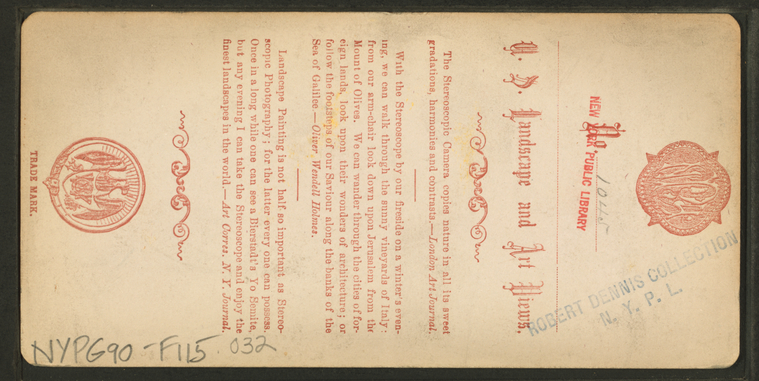 No 1045
NEW YORK PUBLIC LIBRARY
ROBERT DENNIS COLLECTION
N. Y. P. L.
Landscape and Art Views.
The Stereoscopic Camera copies nature in all its sweet
gradations, harmonies and contrasts.—London Art Journal.
With the Stereoscope by our fireside on a winter's even-
ing, we can walk through the sunny vineyards of Italy:
from our arm-chair look down upon Jerusalem from the
Mount of Olives. We can wander through the cities of for-
eign lands, look upon their wonders of architecture; or
follow the footsteps of our Saviour along the banks of the
Sea of Galilee.—Oliver Wendell Holmes.
Landscape Painting is not half so important as Stereo-
scopic Photography; for the latter every one can possess.
Once in a long while one can see a Bierstadt's Yo Semite,
but any evening I can take the Stereoscope and enjoy the
finest landscapes in the world.—Art Corres. N. Y. Journal.
TRADE MARK.
NYPG90-F115 032